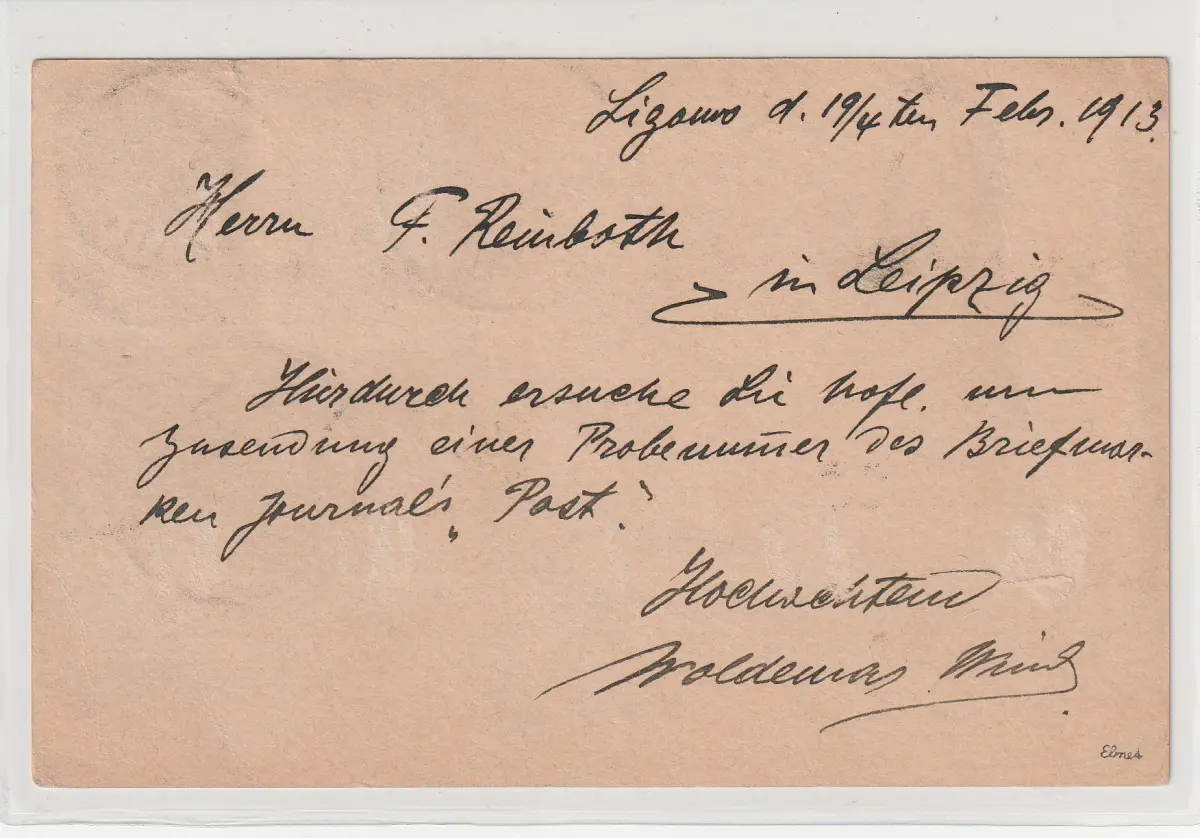 Ligowo d. 19/4ten Febr. 1913.
Herrn F. Reinboth
in Leipzig
Hierdurch ersuche Sie höfl. um
Zusendung einer Probenum̄er des Briefmar-
ken Journal's „Post“.
Hochachtend
Woldemar